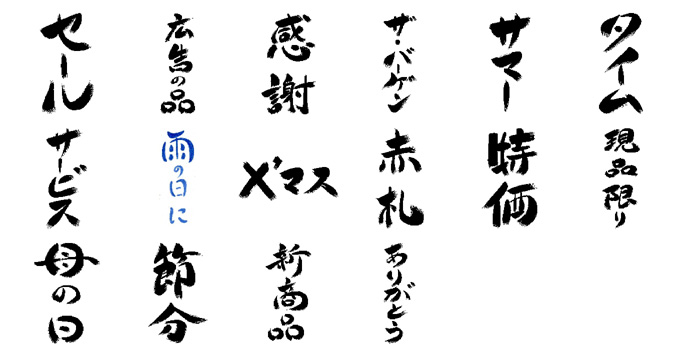 セール
広告の品
感謝
ザ・バーゲン
サマー
タイム
サービス
雨の日に
X'マス
赤札
特価
現品限り
母の日
節分
新商品
ありがとう